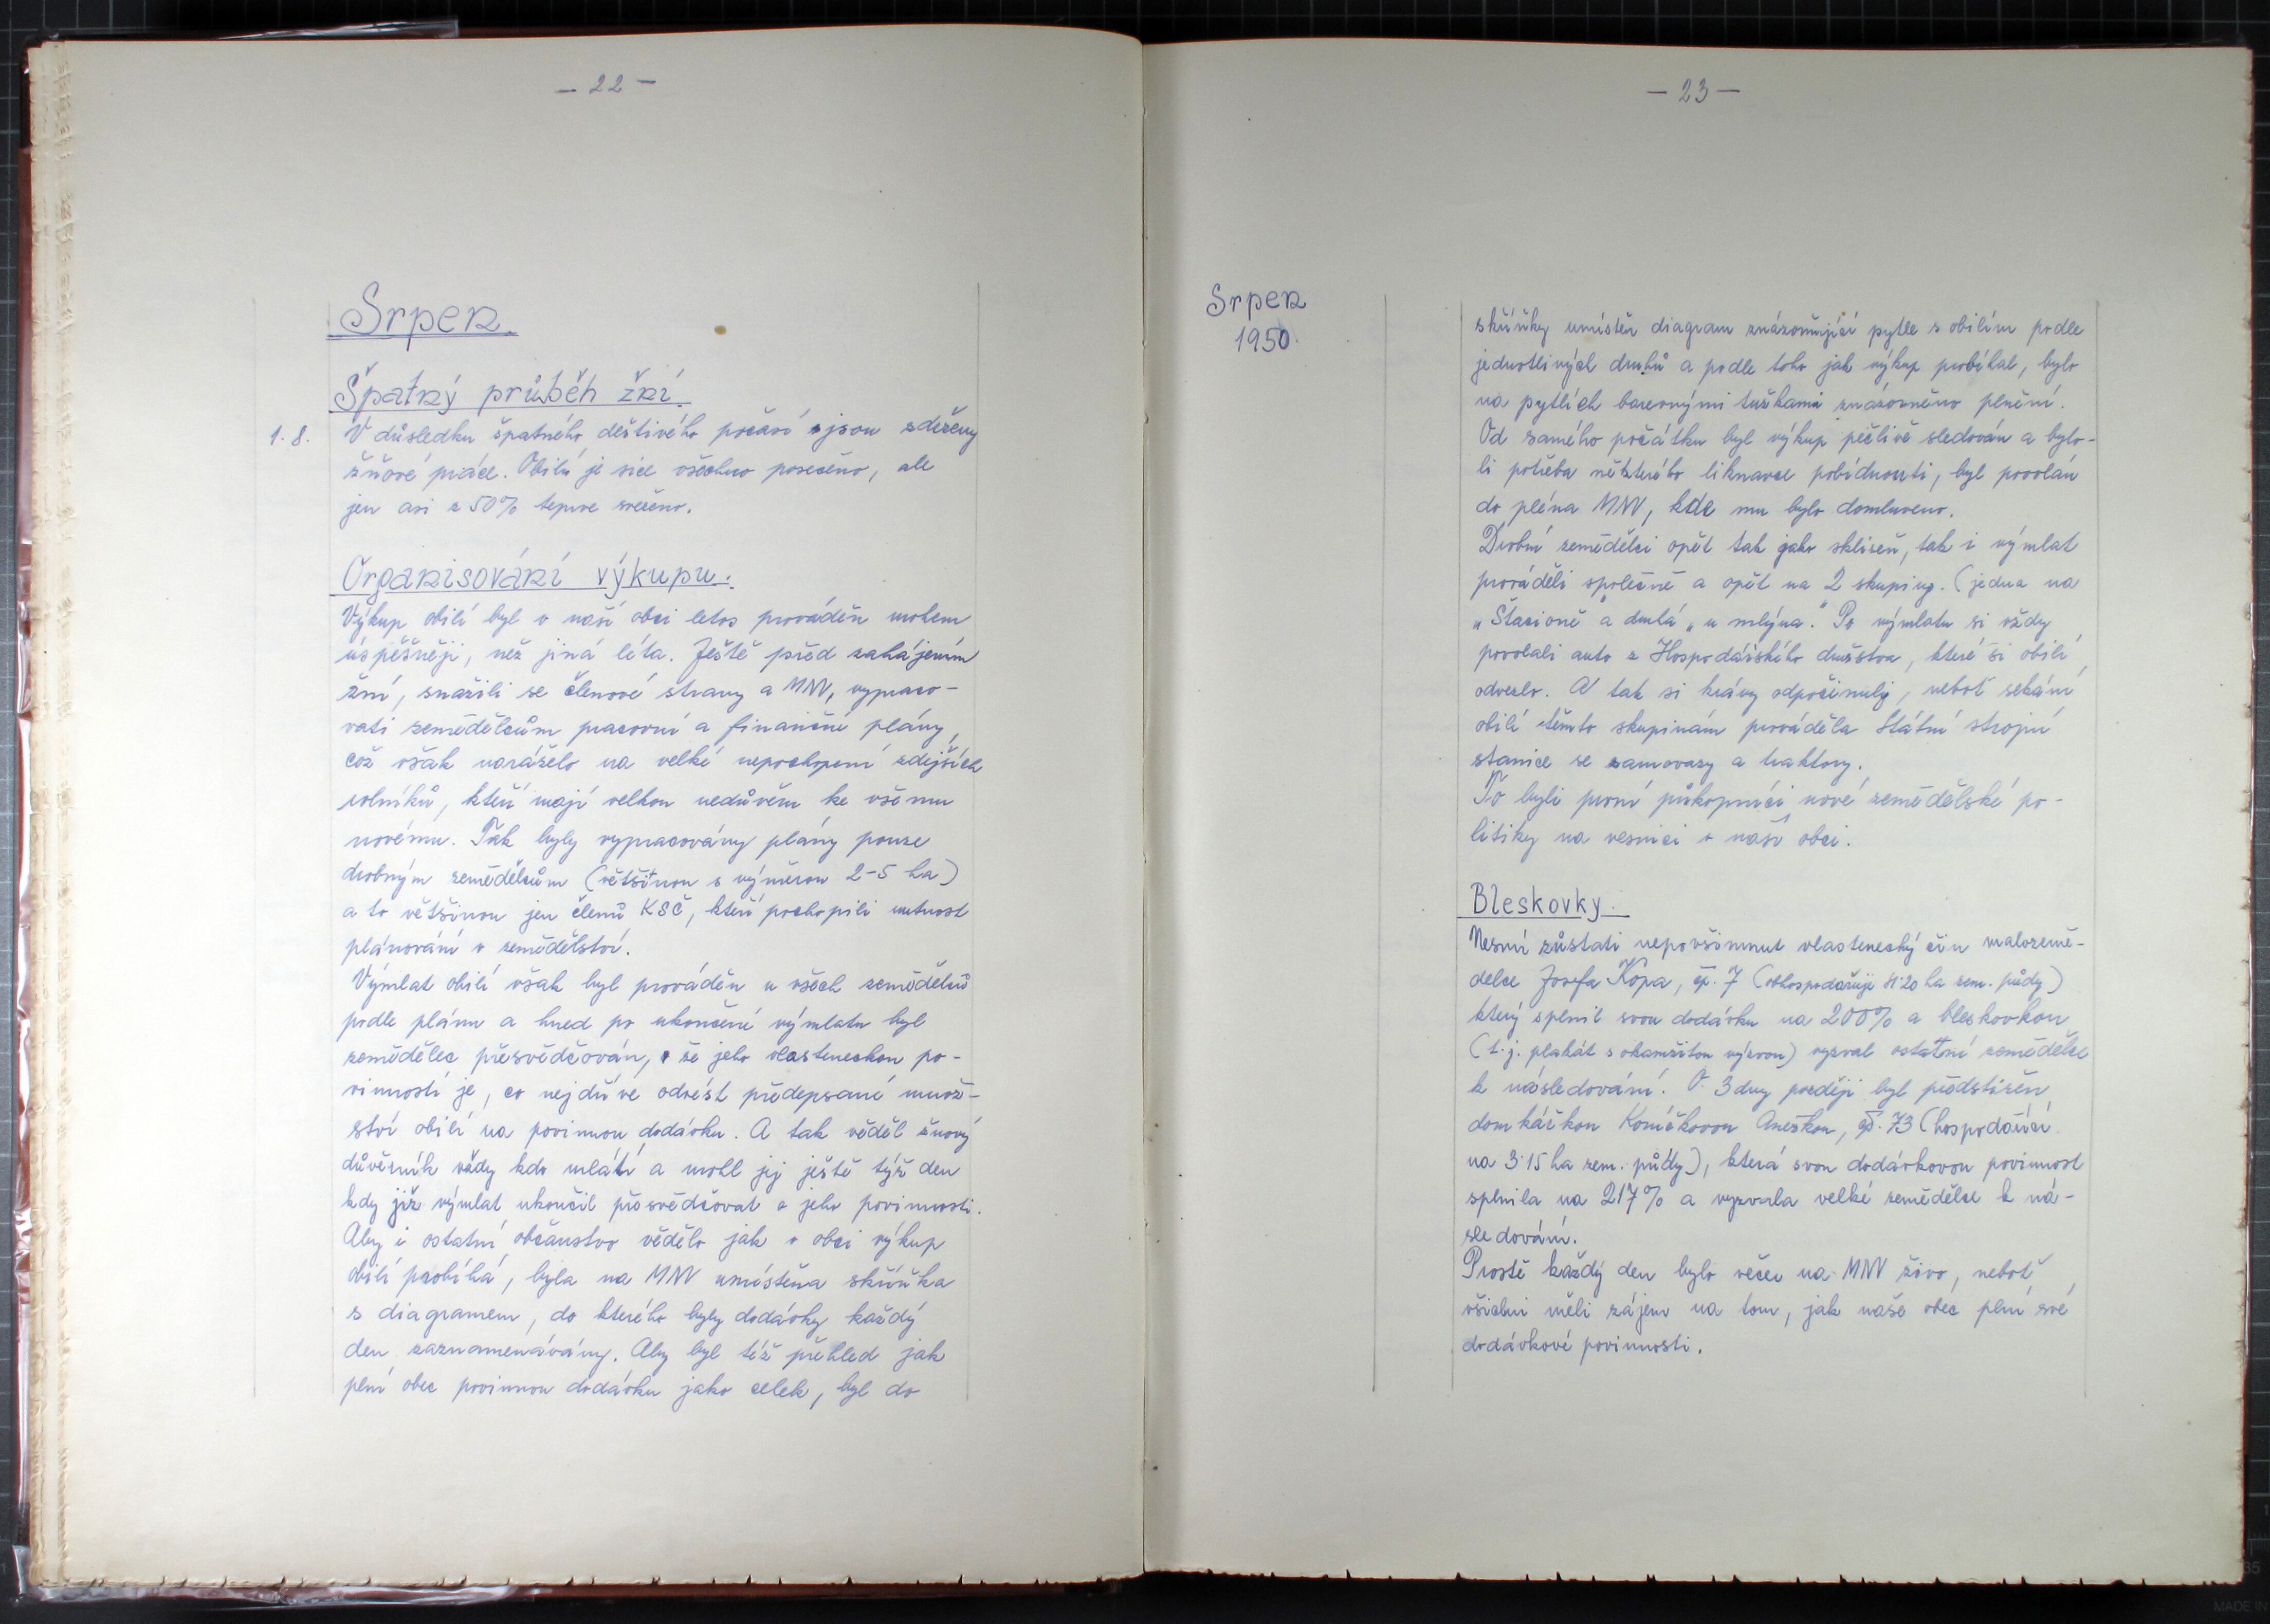 - 22 -
Srpen
Špatný průběh žní.
1. 8. V důsledku špatného deštivého počasí jsou zdrženy
žňové práce. Obilí je sice všechno posečeno, ale
jen asi z 50% teprve svezeno.
Organisování výkupu.
Výkup obilí byl v naší obci letos prováděn mohem
úspěšněji, než jiná léta. Ještě před zahájením
žní, snažili se členové strany a MNV, vypraco-
vati zemědělcům pracovní a finanční plány,
což však naráželo na velké nepochopení zdejších
rolníků, kteří mají velkou nedůvěru ke všemu
novému. Tak byly vypracovány plány pouze
drobným zemědělcům (většinou s výměrou 2-5 ha)
a to většinou jen členů KSČ, kteří pochopili nutnost
plánování v zemědělství.
Výmlat obilí však byl prováděn u všech zemědělců
podle plánu a hned po ukončení výmlatu byl
zemědělec přesvědčován, že jeho vlasteneckou po-
vinností je, co nejdříve odvést předepsané množ-
ství obilí na povinnou dodávku. A tak věděl žňový
důvěrník vždy kdo mlátí a mohl jej ještě týž den
kdy již výmlat ukončil přesvědčovat o jeho povinnosti.
Aby i ostatní občanstvo vědělo jak v obci výkup
obilí probíhá, byla na MNV umístěna skříňka
s diagramem, do kterého byly dodávky každý
den zaznamenávány. Aby byl též přehled jak
plní obec povinnou dodávku jako celek, byl do
- 23 -
Srpen
1950.
skříňky umístěn diagram znázorňující pytle s obilím podle
jednotlivých druhů a podle toho jak výkup probíhal, bylo
na pytlích barevnými tužkami znázorněno plnění.
Od samého počátku byl výkup pečlivě sledován a bylo-
li potřeba některého liknavce pobídnouti, byl povolán
do pléna MNV, kde mu bylo domluveno.
Drobní zemědělci opět tak jako sklizeň, tak i výmlat
prováděli společně a opět na 2 skupiny. (jedna na
„Štacioně" a druhá „u mlýna". Po výmlatu si vždy
povolali auto z Hospodářského družstva, které si obilí
odvezlo. A tak si krávy odpočinuly, neboť sekání
obilí těmto skupinám prováděla Státní strojní
stanice se samovazy a traktory.
To byli první průkopníci nové zemědělské po-
litiky na vesnici v naší obci.
Bleskovky.
Nesmí zůstati nepovšimnut vlastenecký čin malozemě-
dělce Josefa Kopa, čp. 7 (obhospodařuje 4·20 ha zem. půdy)
který splnil svou dodávku na 200% a bleskovkou
(t. j. plakát s okamžitou výzvou) vyzval ostatní zemědělce
k následování. O 3 dny později byl předstižen
domkářkou Koníčkovou Anežkou, čp. 73 (hospodařící
na 3·15 ha zem. půdy), která svou dodávkovou povinnost
splnila na 217% a vyzvala velké zemědělce k ná-
sledování.
Prostě každý den bylo večer na MNV živo, neboť
všichni měli zájem na tom, jak naše obec plní své
dodávkové povinnosti.